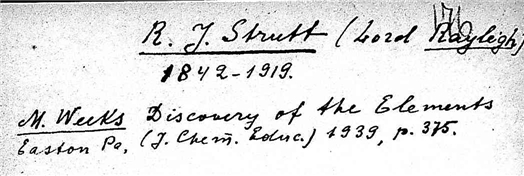 176
R. J. Strutt (Lord Rayleigh)
1842-1919.
M. Weeks Discovery of the Elements
Easton Pa, (J. Chem. Educ.) 1939, p. 375.